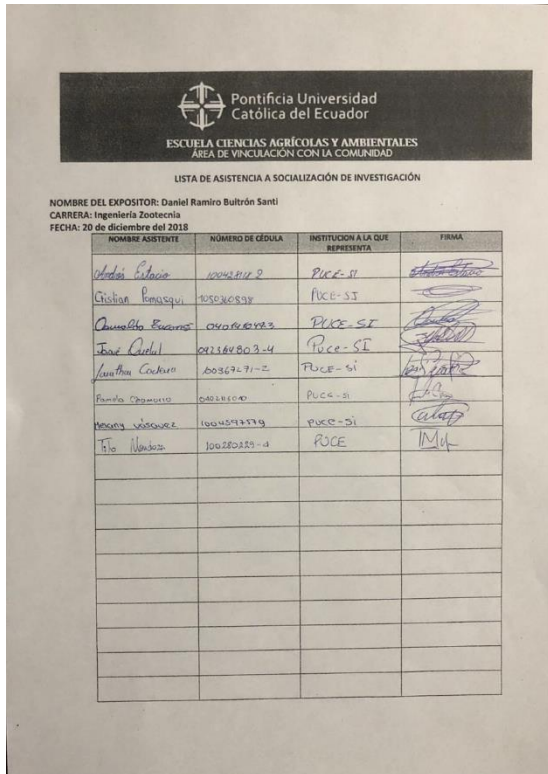 Pontificia Universidad
Católica del Ecuador
ESCUELA CIENCIAS AGRÍCOLAS Y AMBIENTALES
ÁREA DE VINCULACIÓN CON LA COMUNIDAD
LISTA DE ASISTENCIA A SOCIALIZACIÓN DE INVESTIGACIÓN
NOMBRE DEL EXPOSITOR: Daniel Ramiro Buitrón Santi
CARRERA: Ingeniería Zootecnia
FECHA: 20 de diciembre del 2018
NOMBRE ASISTENTE NÚMERO DE CÉDULA INSTITUCION A LA QUE REPRESENTA FIRMA
Andrés Estacio PUCE-SI
Cristian Pomasqui 1050360898 PUCE-SI
PUCE-SI
José PUCE-SI
PUCE-Si
Pamela PUCE-SI
Vásquez 1004597579 PUCE-Si
Tito Mendoza 100280229-4 PUCE